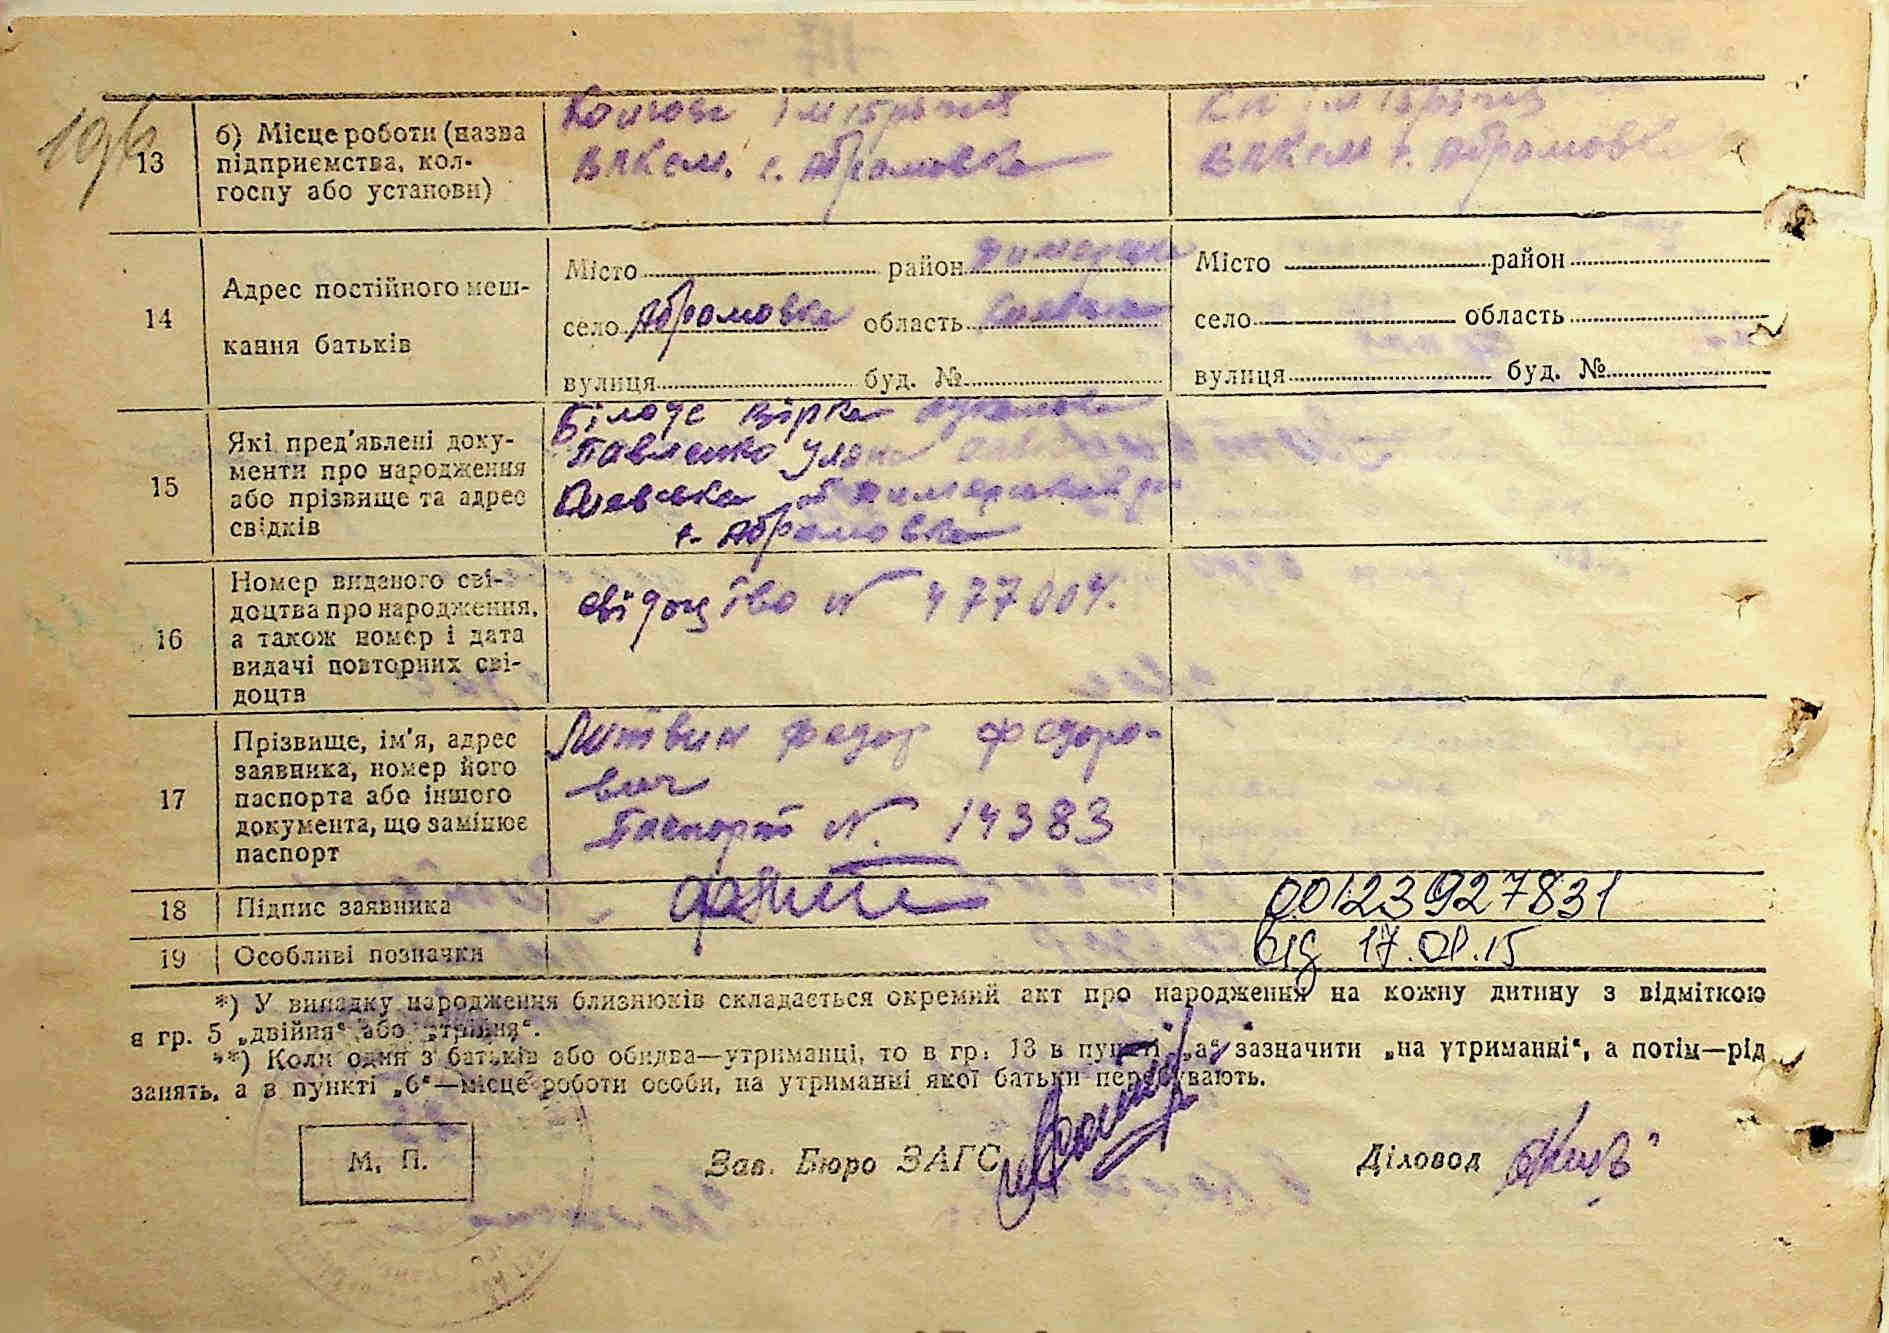 13
б) Місце роботи (назва
підприємства, кол-
госпу або установи)
Колгосп Ім 15річчя
ВЛКСМ. с. Абрамовка
КП Ім 15річчя
ВЛКСМ с. Абрамовка
14
Адрес постійного меш-
кання батьків
Місто район Димерськ
село Абрамовка область Київська
вулиця буд. №
Місто район
село область
вулиця буд. №
15
Які пред'явлені доку-
менти про народження
або прізвище та адрес
свідків
Павленко Уляна
Київська
с. Абрамовка
16
Номер виданого сві-
доцтва про народження,
а також номер і дата
видачі повторних сві-
доцтв
свідоцтво N 477004.
17
Прізвище, ім'я, адрес
заявника, номер його
паспорта або іншого
документа, що замінює
паспорт
Литвин Федор Федоро-
вич
Паспорт N. 14383
18
Підпис заявника
00123927831
19
Особливі позначки
від 17.01.15
*) У випадку народження близнюків складається окремий акт про народження на кожну дитину з відміткою
в гр. 5 „двійня“ або „трійня“.
**) Коли один з батьків або обидва—утриманці, то в гр. 13 в пункті „а“ зазначити „на утриманні“, а потім—рід
занять, а в пункті „б“—місце роботи особи, на утриманні якої батьки перебувають.
М. П.
Зав. Бюро ЗАГС
Діловод